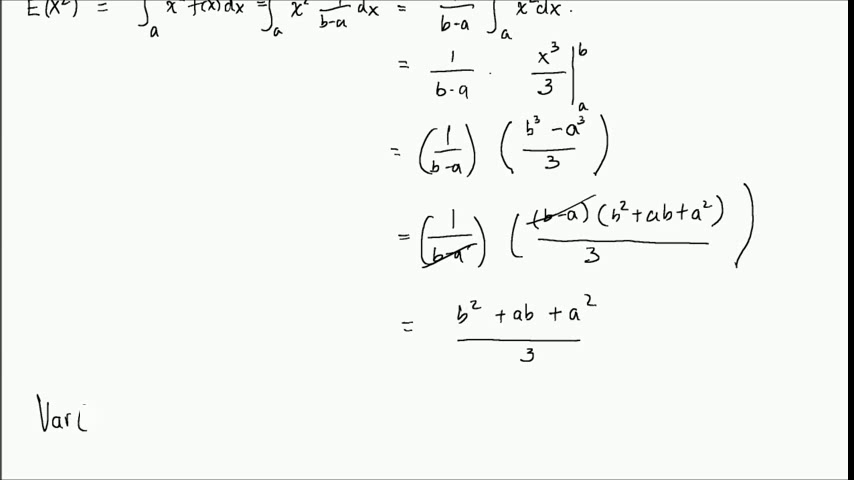 E(X²) = ∫ₐ x² f(x) dx = ∫ₐ x² 1/(b-a) dx = 1/(b-a) ∫ₐ x² dx.
= 1/(b-a) · x³/3 |ₐᵇ
= (1/(b-a)) ((b³ - a³)/3)
= (1/(b-a)) ((b-a)(b² + ab + a²)/3)
= (b² + ab + a²)/3
Vari